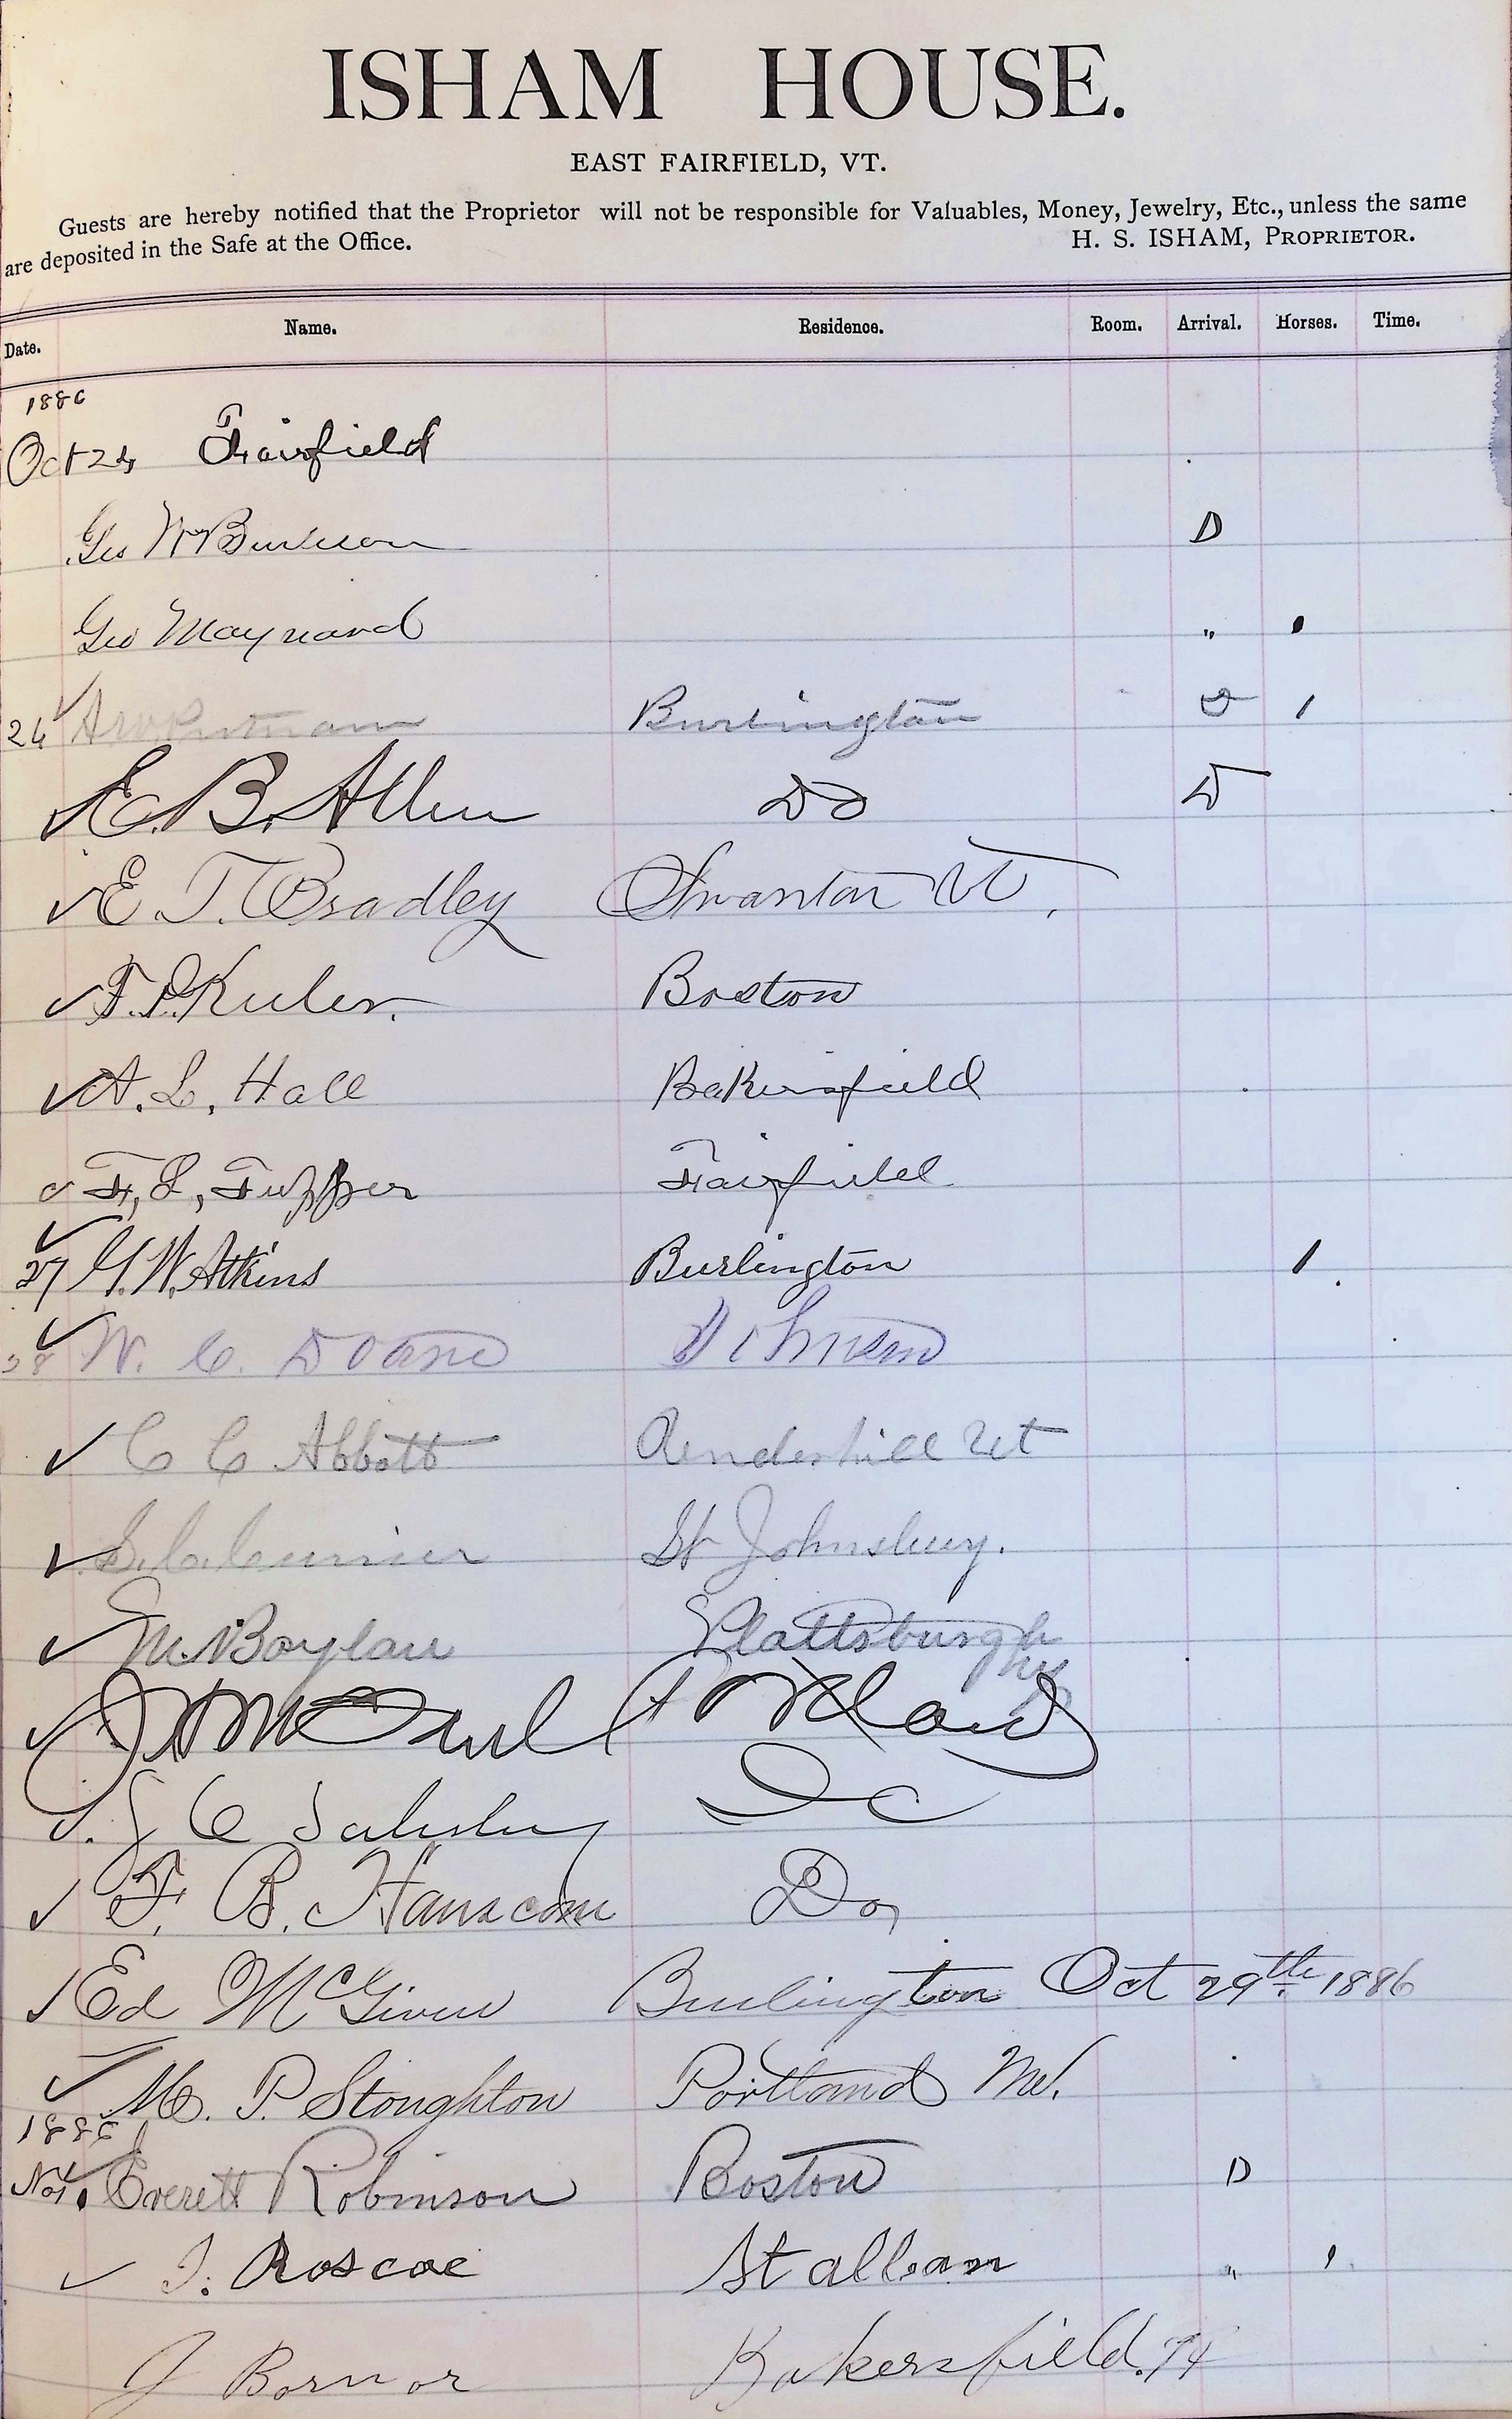 ISHAM HOUSE.
EAST FAIRFIELD, VT.
Guests are hereby notified that the Proprietor will not be responsible for Valuables, Money, Jewelry, Etc., unless the same
are deposited in the Safe at the Office. H. S. ISHAM, PROPRIETOR.
Date. Name. Residence. Room. Arrival. Horses. Time.
1886
Oct 24 Fairfield
Geo W D
Geo Maynard " 1
26 Putnam Burlington 1
E. B. Allen Do D
E. T. Bradley Swanton Vt.
F. P. Boston
A. L. Hall Bakersfield
F, L, Tupper Fairfield
27 G. W. Atkins Burlington 1
28 W. C. Doane
C C Abbott Underhill Vt
S. C. Currier St Johnsbury.
M. N Boylan Plattsburgh
NY
Portland
J C Salisbury Do
F. B. Hanscom Do,
Ed McGivern Burlington Oct 29th 1886
M. P. Stoughton Portland Me.
1886
Nov 1. Everett Robinson Boston D
J. Roscoe St alban " 1
J Bornor Bakersfield.